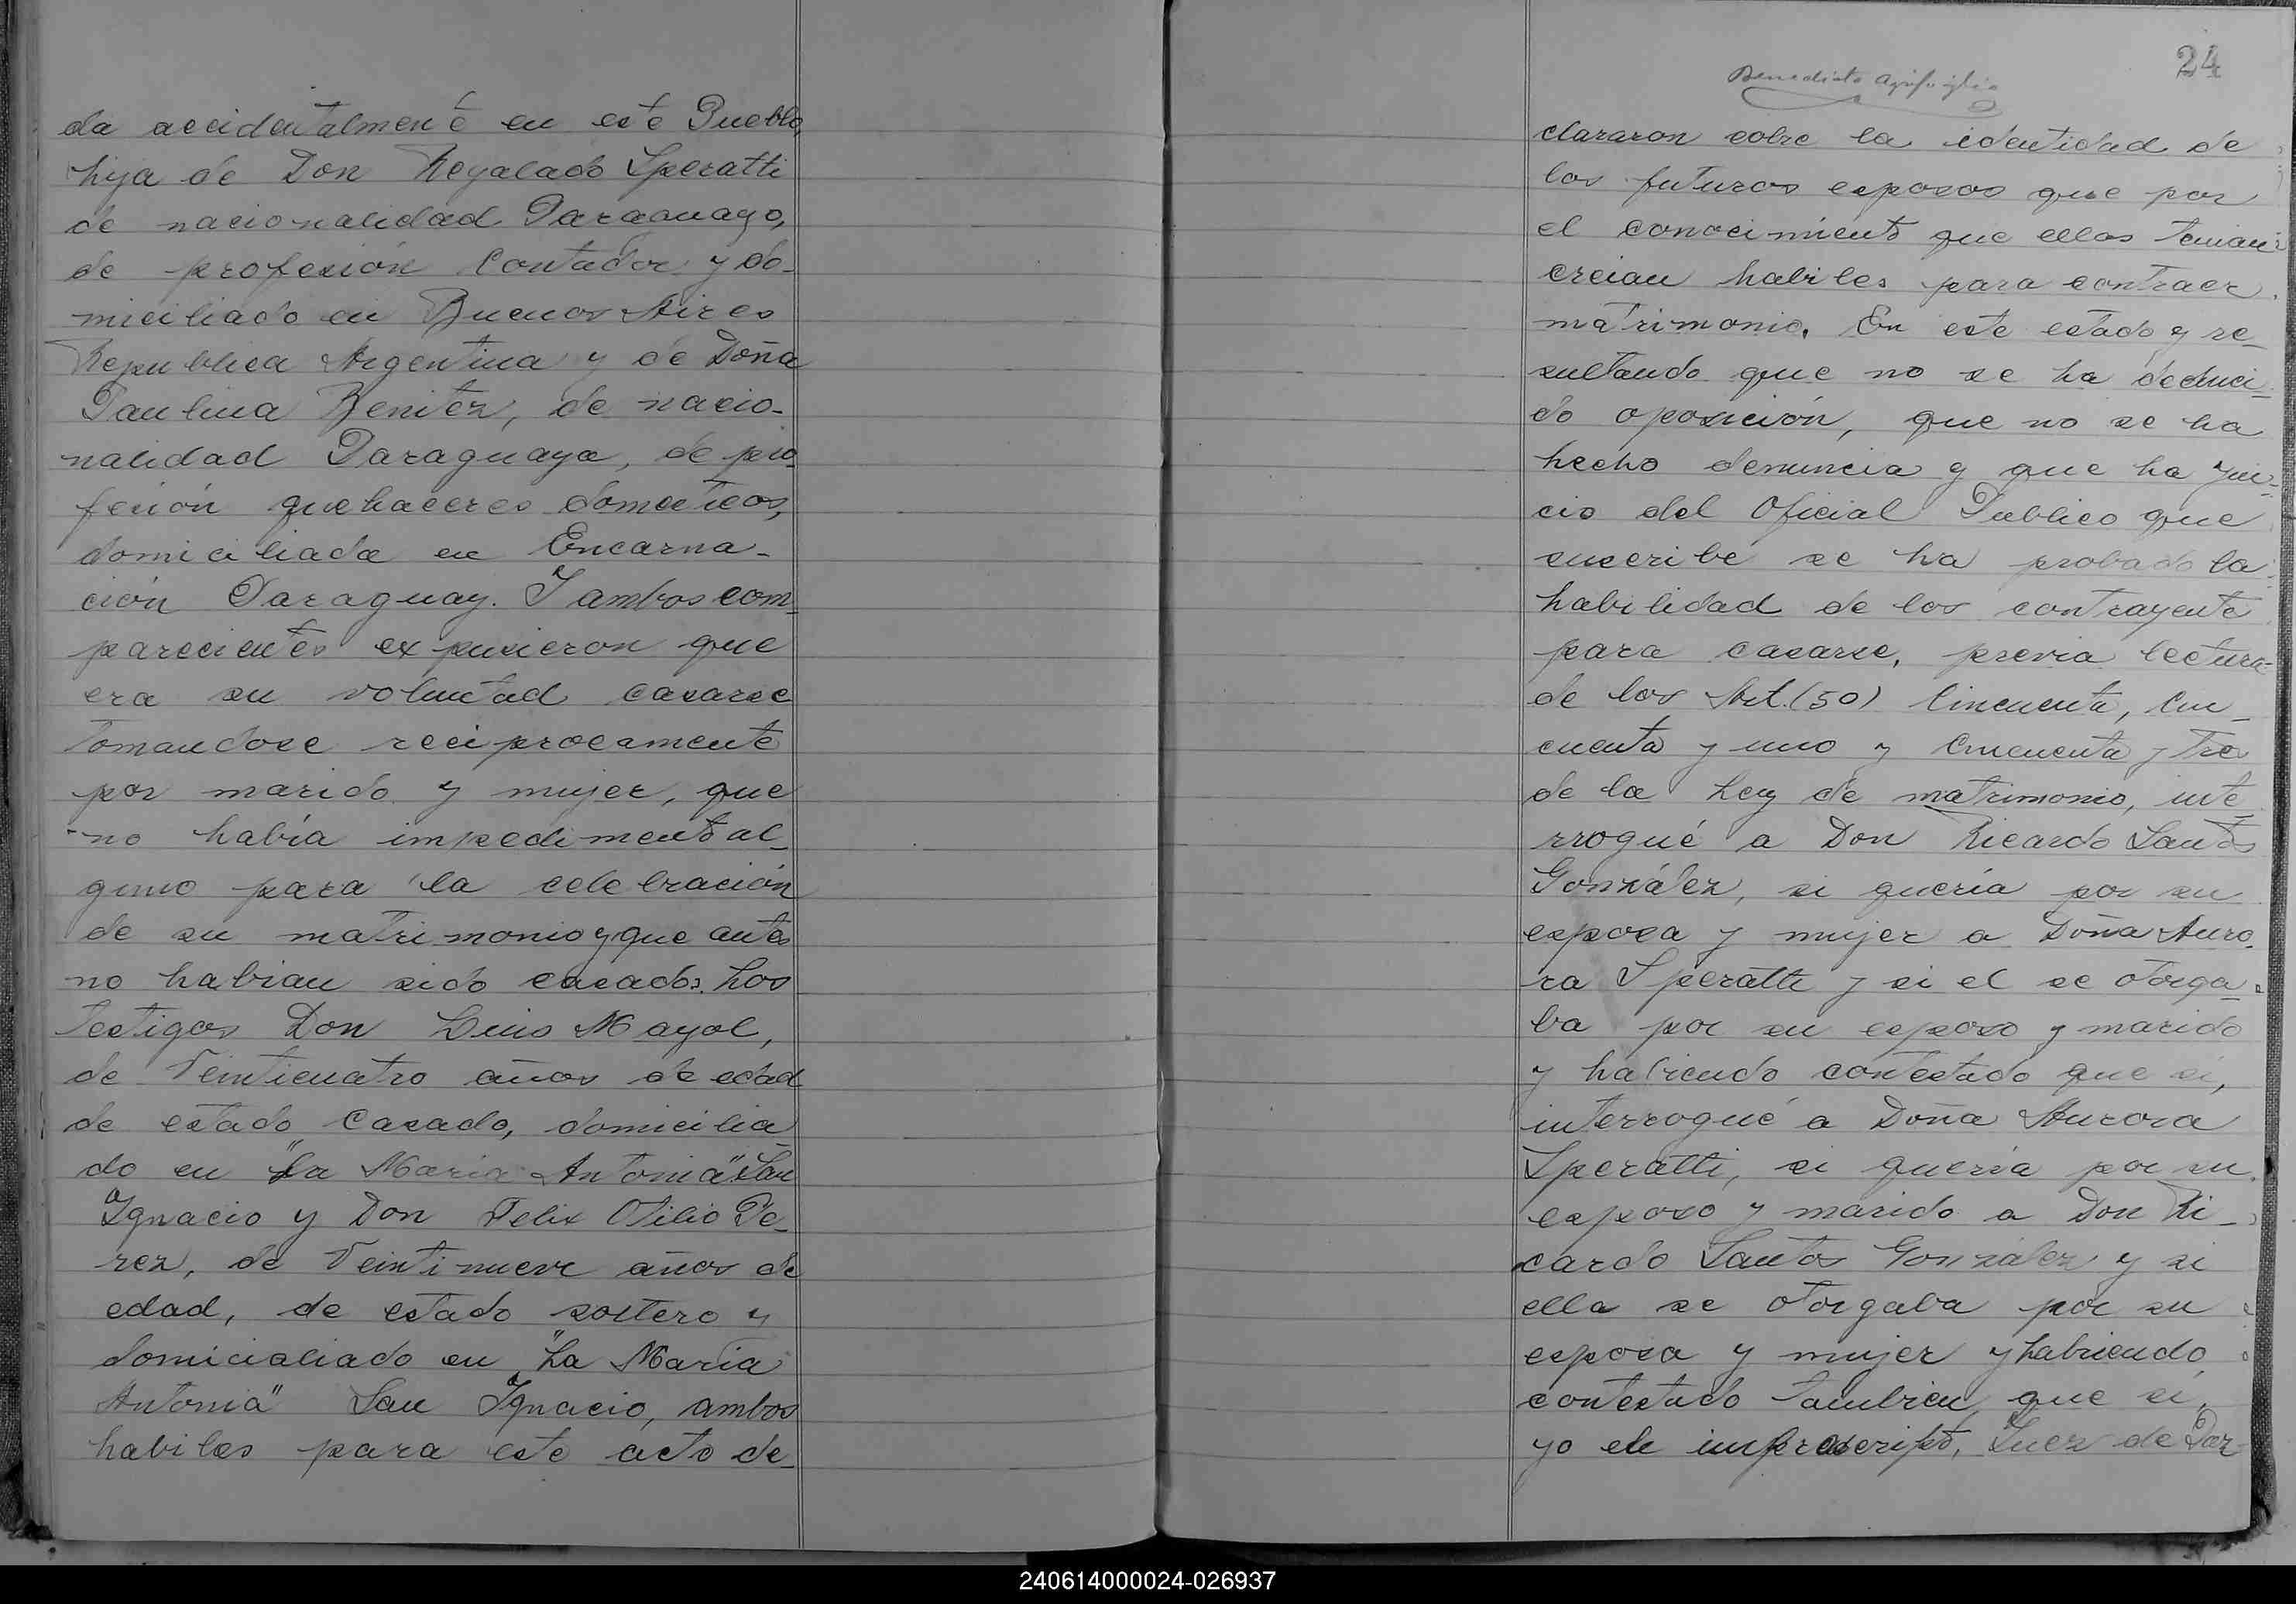 da accidentalmente en este Pueblo,
hija de Don Regalado Speratti
de nacionalidad Paraguayo,
de profesión Contador y do-
miciliado en Buenos Aires
Republica Argentina y de Doña
Paulina Benitez, de nacio-
nalidad Paraguaya, de pro-
fesión quehaceres domesticos,
domiciliada en Encarna-
ción Paraguay. Y ambos com-
parecientes expusieron que
era su voluntad casarse
tomandose reciprocamente
por marido y mujer, que
no había impedimento al-
guno para la celebración
de su matrimonio y que antes
no habian sido casados. Los
testigos Don Luis Mayol,
de Veinticuatro años de edad
de estado Casado, domicilia-
do en "La Maria Antonia" San
Ignacio y Don Felix Otilio Pe-
rez, de Veintinueve años de
edad, de estado soltero y
domicialiado en "La Maria
Antonia" San Ignacio, ambos
habiles para este acto de-
24
Benedicto
clararon sobre la identidad de
los futuros esposos que por
el conocimiento que ellos tenian
creian habiles para contraer
matrimonio. En este estado y re-
sultando que no se ha deduci-
do oposición, que no se ha
hecho denuncia y que ha jui-
cio del Oficial Publico que
suscribe se ha probado la
habilidad de los contrayente
para casarse, previa lectura
de los Art. (50) Cincuenta, Cin-
cuenta y uno y Cincuenta y tres
de la Ley de matrimonio, inte-
rrogué a Don Ricardo Santos
González, si quería por su
esposa y mujer a Doña Auro-
ra Speratti y si el se otorga-
ba por su esposo y marido
y habiendo contestado que si,
interrogué a Doña Aurora
Speratti, si quería por su
esposo y marido a Don Ri-
cardo Santos González y si
ella se otorgaba por su
esposa y mujer y habiendo
contestado tambien que si,
yo ele infrascripto, Juez de Paz